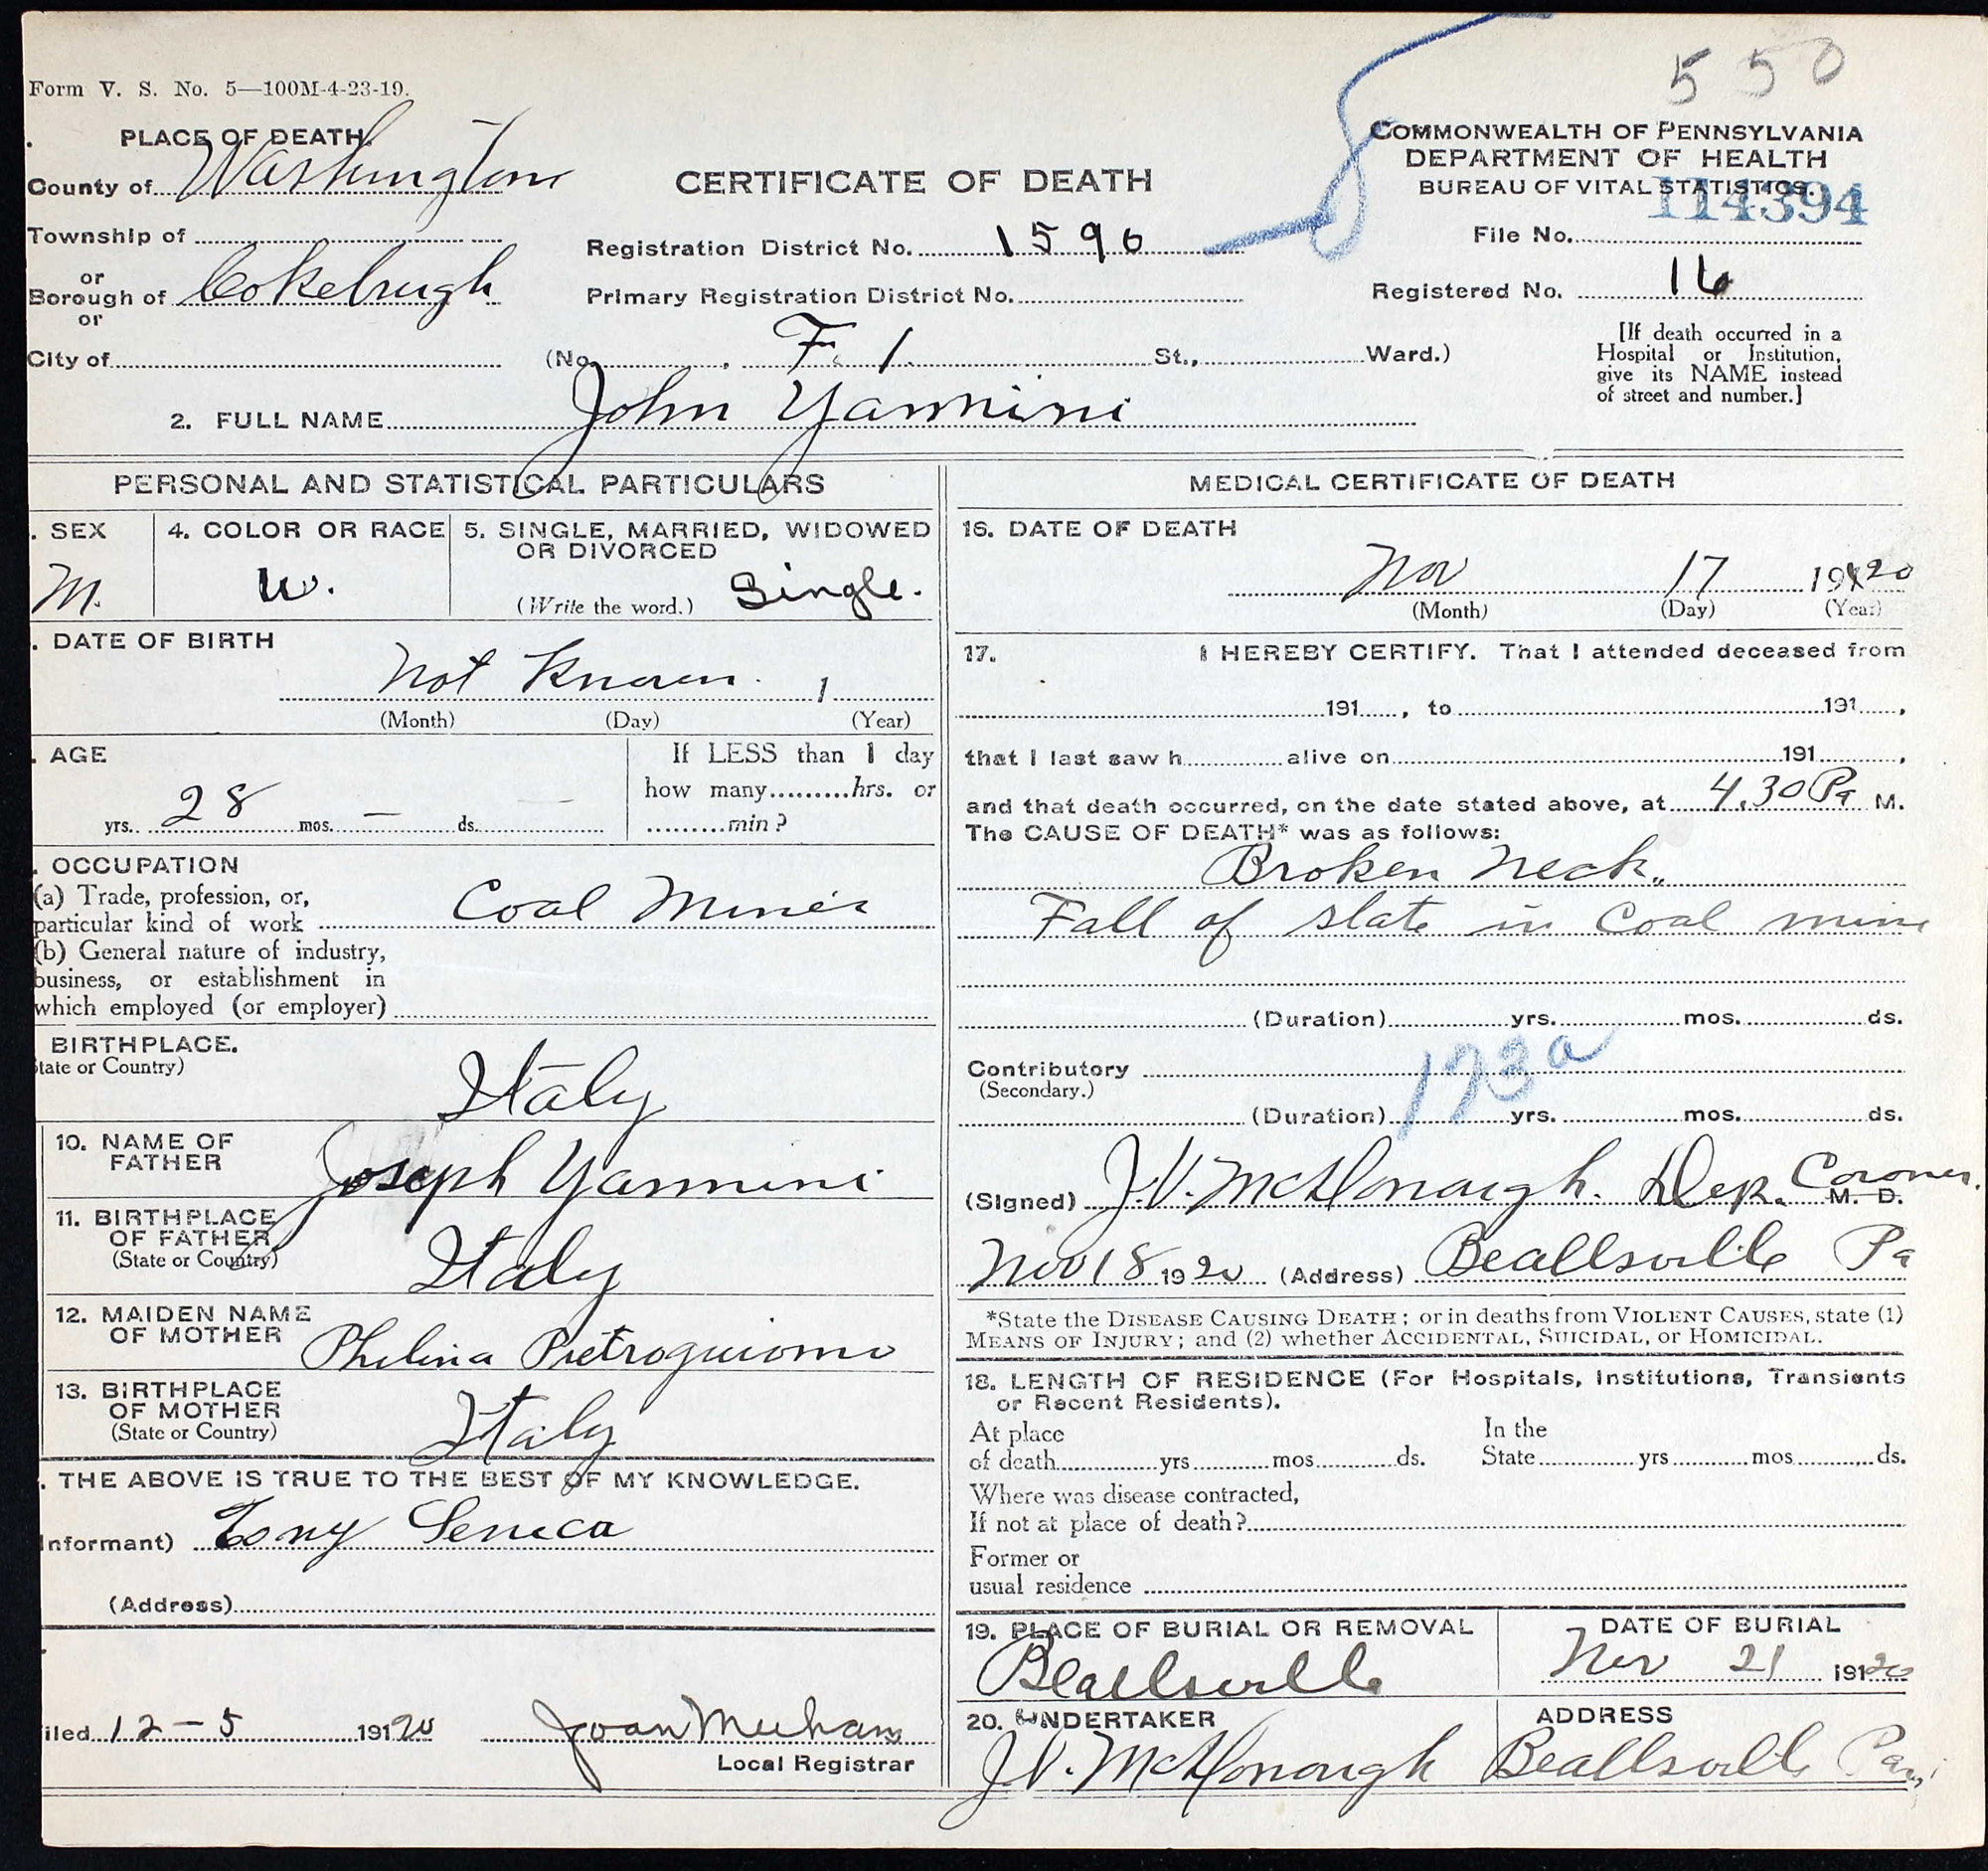 550
Form V. S. No. 5—100M-4-23-19.
PLACE OF DEATH.
County of Washington
Township of
or
Borough of Cokeburgh
or
City of
CERTIFICATE OF DEATH
Registration District No. 1596
Primary Registration District No.
(No. , F. 1. St., Ward.)
COMMONWEALTH OF PENNSYLVANIA
DEPARTMENT OF HEALTH
BUREAU OF VITAL STATISTICS.
114394
File No.
Registered No. 16
[If death occurred in a
Hospital or Institution,
give its NAME instead
of street and number.]
2. FULL NAME John Yannini
PERSONAL AND STATISTICAL PARTICULARS
. SEX
M.
4. COLOR OR RACE
W.
5. SINGLE, MARRIED, WIDOWED
OR DIVORCED
(Write the word.) Single.
. DATE OF BIRTH
Not Known. 1
(Month) (Day) (Year)
. AGE
28 yrs. — mos. ds.
If LESS than 1 day
how many hrs. or
min?
. OCCUPATION
(a) Trade, profession, or,
particular kind of work Coal Miner
(b) General nature of industry,
business, or establishment in
which employed (or employer)
BIRTHPLACE.
tate or Country)
Italy
10. NAME OF
FATHER
Joseph Yannini
11. BIRTHPLACE
OF FATHER
(State or Country)
Italy
12. MAIDEN NAME
OF MOTHER
Philina
13. BIRTHPLACE
OF MOTHER
(State or Country)
Italy
. THE ABOVE IS TRUE TO THE BEST OF MY KNOWLEDGE.
nformant) Tony Seneca
(Address)
iled 12-5 19120
Local Registrar
MEDICAL CERTIFICATE OF DEATH
16. DATE OF DEATH
Nov 17 1920
(Month) (Day) (Year)
17. I HEREBY CERTIFY. That I attended deceased from
191 , to 191 ,
that I last saw h alive on 191 ,
and that death occurred, on the date stated above, at 4.30 P. M.
The CAUSE OF DEATH* was as follows:
Broken Neck.
Fall of slate in Coal mine
(Duration) yrs. mos. ds.
Contributory
(Secondary.)
173a
(Duration) yrs. mos. ds.
(Signed) J.V. McDonough. Dep. Coroner. M. D.
Nov 18 1920 (Address) Beallsville Pa
*State the DISEASE CAUSING DEATH; or in deaths from VIOLENT CAUSES, state (1)
MEANS OF INJURY; and (2) whether ACCIDENTAL, SUICIDAL, or HOMICIDAL.
18. LENGTH OF RESIDENCE (For Hospitals, Institutions, Transients
or Recent Residents).
At place
of death yrs mos ds.
In the
State yrs mos ds.
Where was disease contracted,
If not at place of death?
Former or
usual residence
19. PLACE OF BURIAL OR REMOVAL
Beallsville
DATE OF BURIAL
Nov 21 19120
20. UNDERTAKER
J.V. McDonough
ADDRESS
Beallsville Pa.